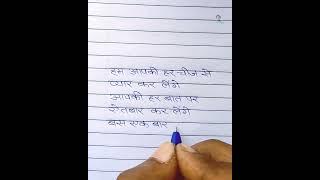 हम आपकी हर चीज से
प्यार कर लेंगे
आपकी हर बात पर
ऐतबार कर लेंगे
बस एक बार